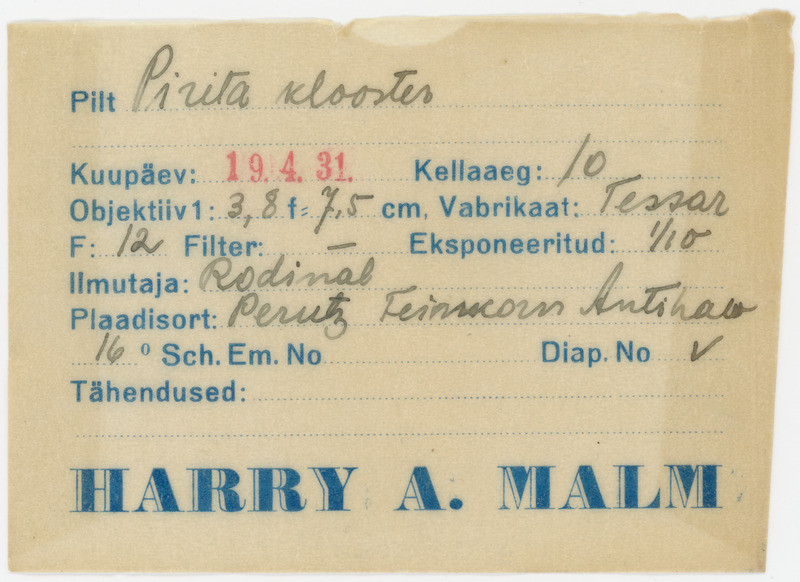 Pilt Pirita klooster
Kuupäev: 19. 4. 31. Kellaaeg: 10
Objektiiv 1: 3,8 f= 7,5 cm, Vabrikaat: Tessar
F: 12 Filter: — Eksponeeritud: 1/10
Ilmutaja: Rodinal
Plaadisort: Perutz Feinkorn Antihalo
16 ° Sch. Em. No Diap. No √
Tähendused:
HARRY A. MALM